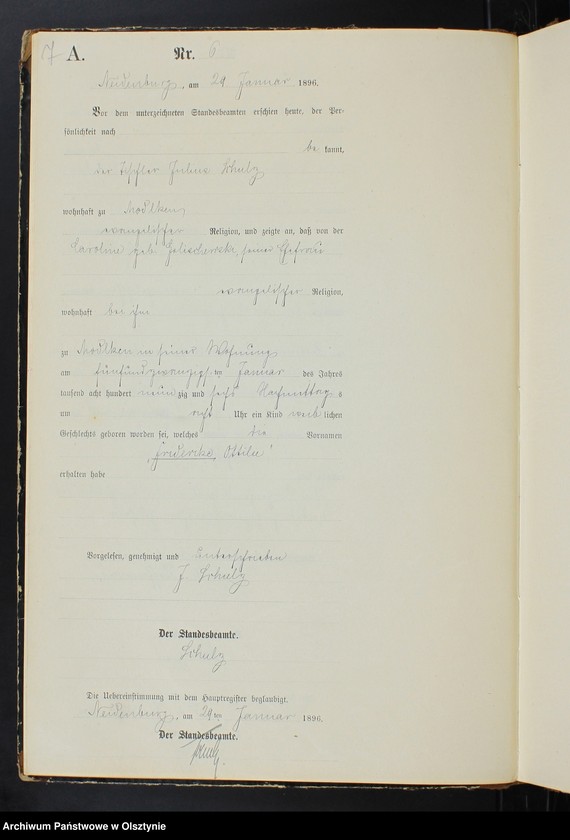 7 A. Nr. 6
Neidenburg, am 29. Januar 1896.
Vor dem unterzeichneten Standesbeamten erschien heute, der Per-
sönlichkeit nach
be kannt,
der Tischler Julius Schulz
wohnhaft zu Modlken
evangelischer Religion, und zeigte an, daß von der
Caroline geb. seiner Ehefrau
evangelischer Religion,
wohnhaft bei ihm
zu Modlken in seiner Wohnung
am fünfundzwanzigsten Januar des Jahres
tausend acht hundert neunzig und sechs Nachmittags
um acht Uhr ein Kind weiblichen
Geschlechts geboren worden sei, welches die Vornamen
„Friedericke Ottilie"
erhalten habe
Vorgelesen, genehmigt und unterschrieben
J. Schulz
Der Standesbeamte.
Schulz
Die Uebereinstimmung mit dem Hauptregister beglaubigt.
Neidenburg, am 29ten Januar 1896.
Der Standesbeamte.
Schulz.
Archiwum Państwowe w Olsztynie